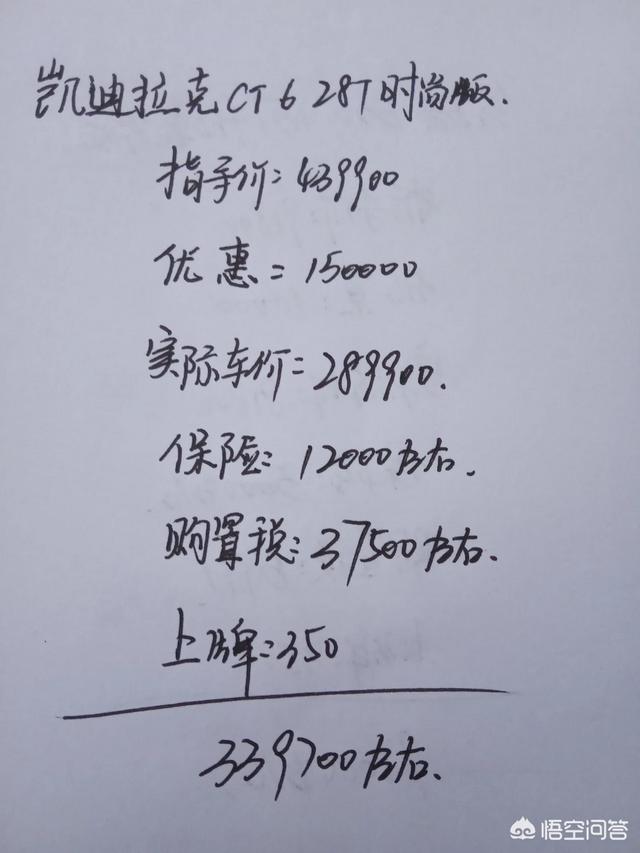 凯迪拉克CT6 28T时尚版.
指导价:439900
优惠=150000
实际车价=289900.
保险:12000左右.
购置税:37500左右.
上牌:350
339700左右.
悟空问答